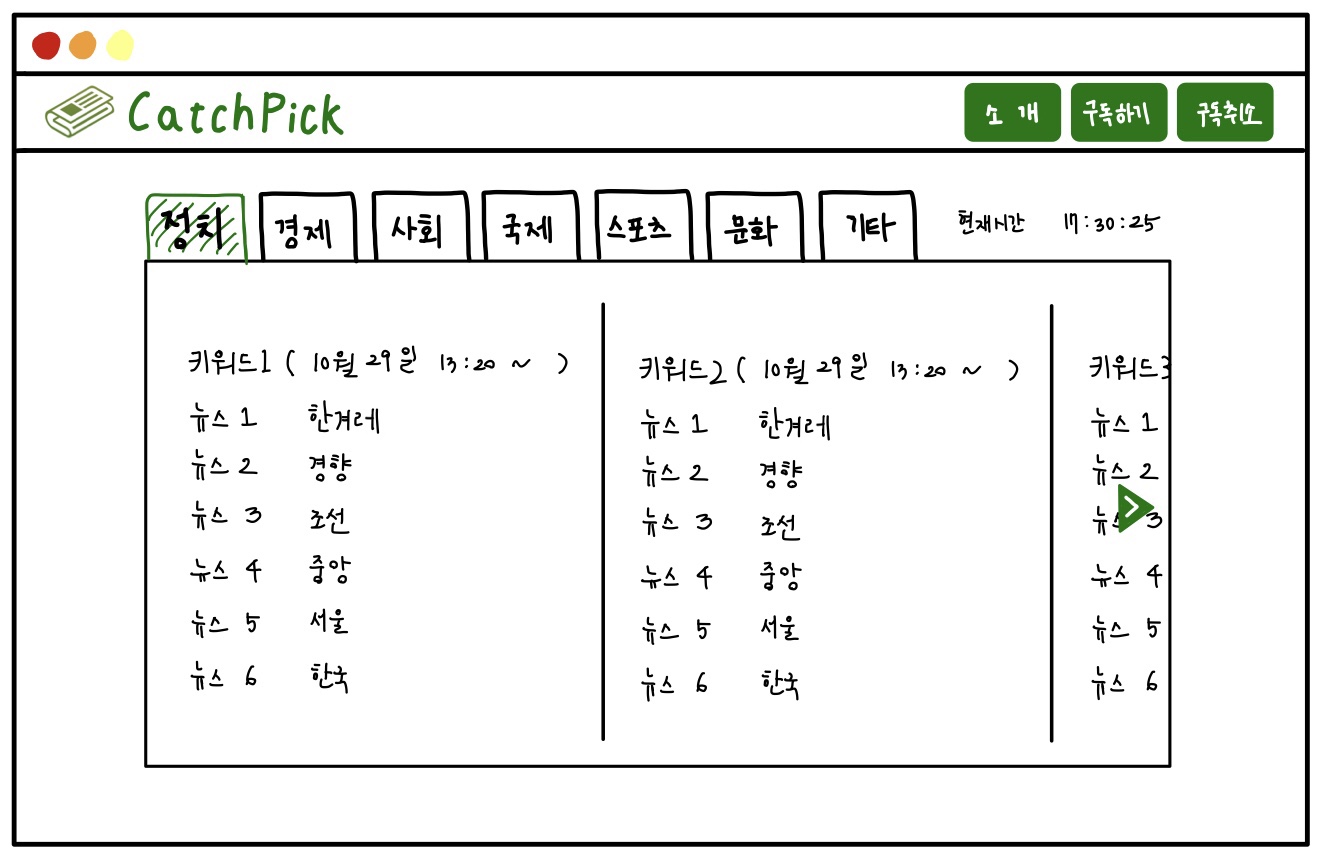 CatchPick 소개 구독하기 구독취소
정치 경제 사회 국제 스포츠 문화 기타 현재시간 17:30:25
키워드1 ( 10월 29일 13:20 ~ )
뉴스 1 한겨레
뉴스 2 경향
뉴스 3 조선
뉴스 4 중앙
뉴스 5 서울
뉴스 6 한국
키워드2 ( 10월 29일 13:20 ~ )
뉴스 1 한겨레
뉴스 2 경향
뉴스 3 조선
뉴스 4 중앙
뉴스 5 서울
뉴스 6 한국
키워드3
뉴스 1
뉴스 2
뉴스 3
뉴스 4
뉴스 5
뉴스 6